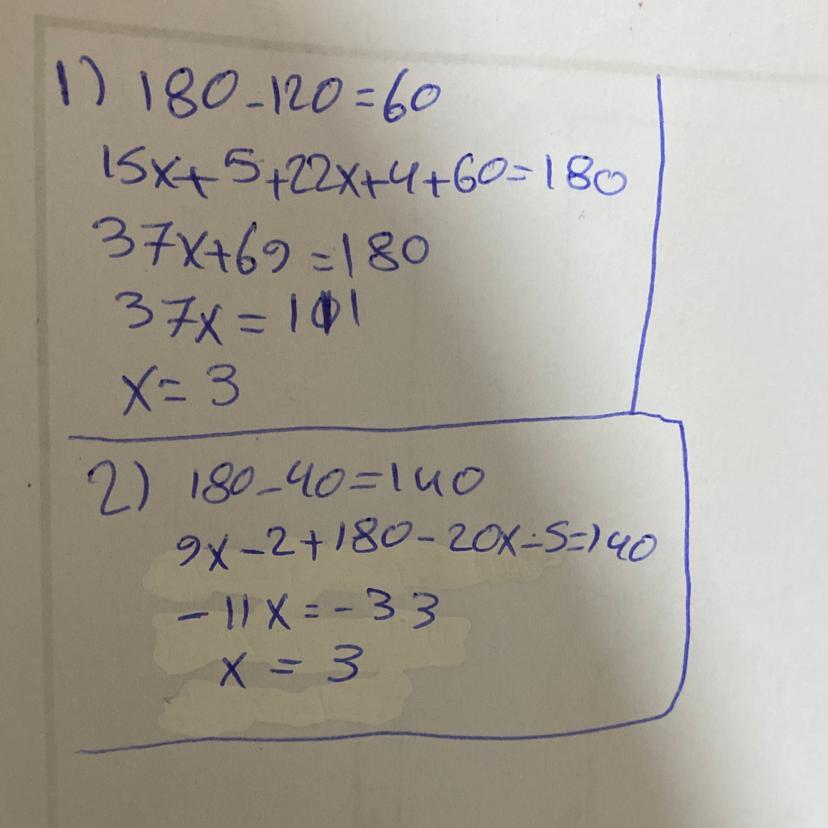 1) 180-120=60
15x+5+22x+4+60=180
37x+69=180
37x=111
x=3
2) 180-40=140
9x-2+180-20x-5=140
-11x=-33
x=3